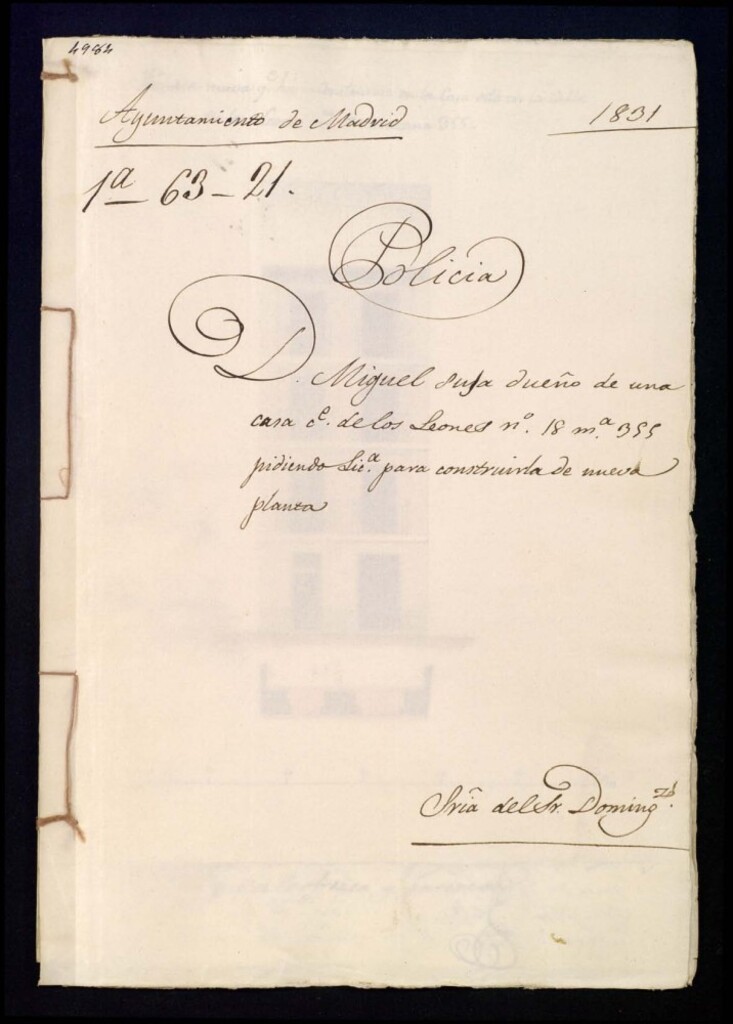 4984
Ayuntamiento de Madrid
1831
1ª - 63 - 21.
Policia
D. Miguel dueño de una
casa c.e de los Leones n.o 18 m.a 355
pidiendo Lic.a para construirla de nueva
planta
Sria del Sr. Doming.z